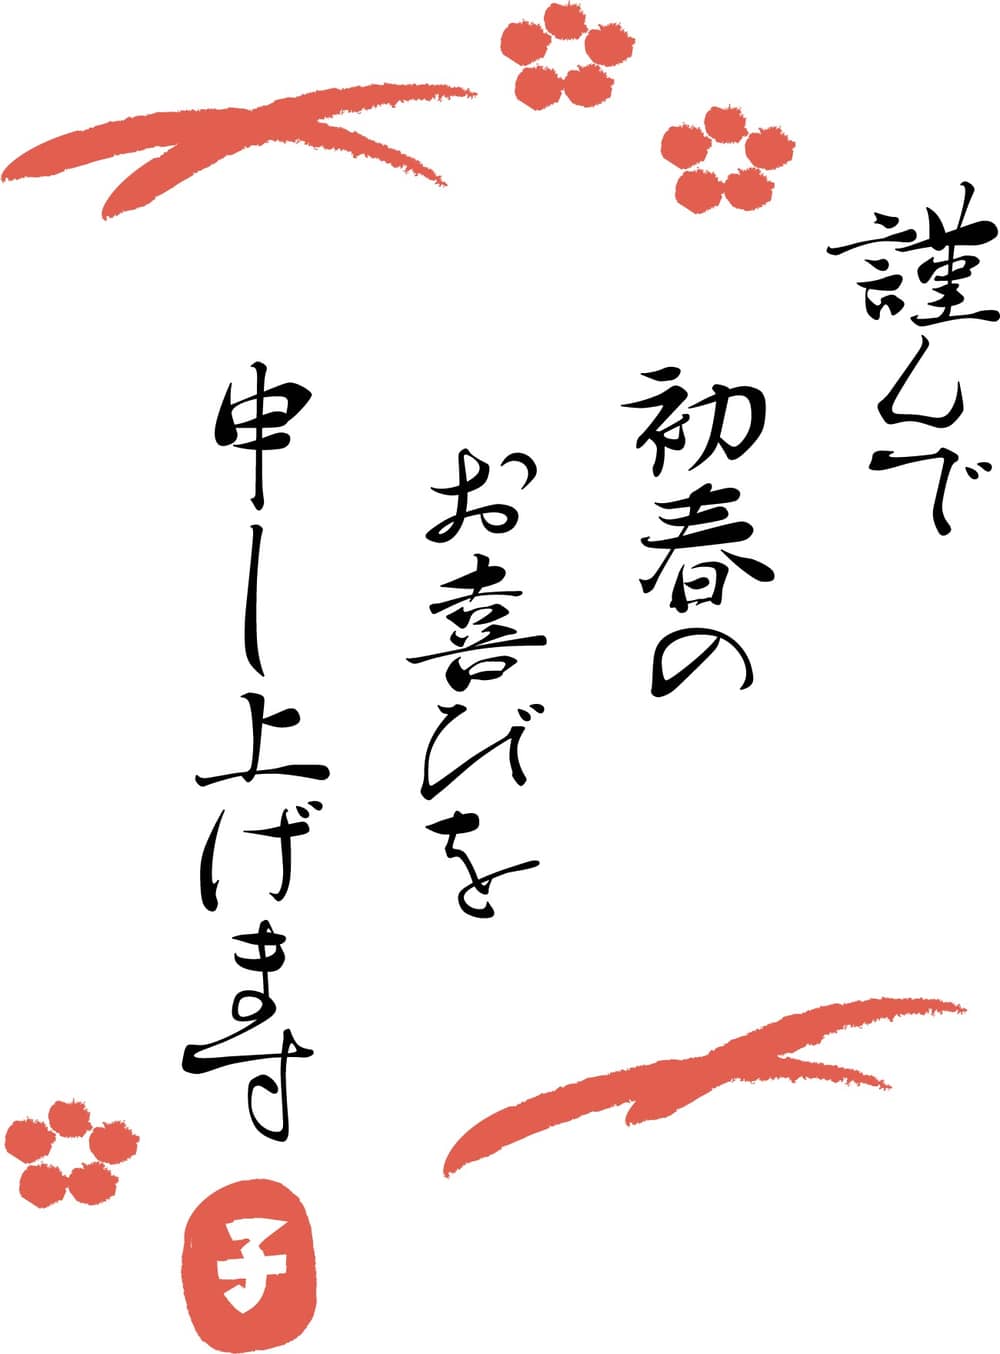 謹んで
初春の
お喜びを
申し上げます
子